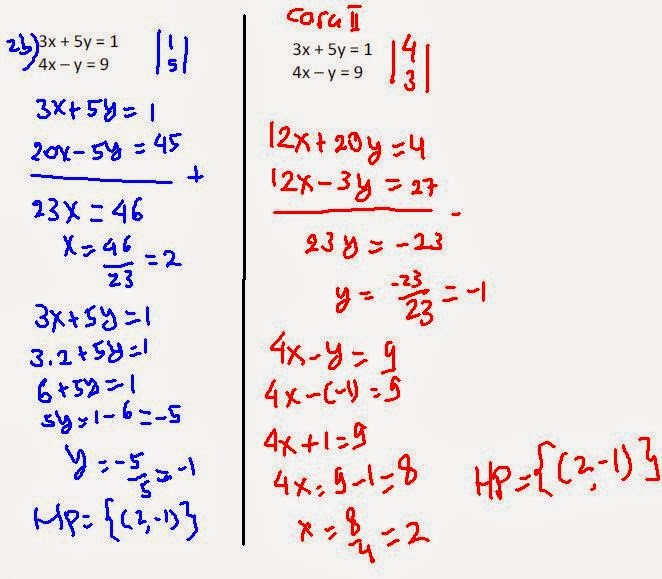 23) 3x + 5y = 1 |1|
4x – y = 9 |5|
3x + 5y = 1
20x - 5y = 45
+
23x = 46
x = 46/23 = 2
3x + 5y = 1
3.2 + 5y = 1
6 + 5y = 1
5y = 1 - 6 = -5
y = -5/5 = -1
HP = {(2,-1)}
cara II
3x + 5y = 1 |4|
4x – y = 9 |3|
12x + 20y = 4
12x - 3y = 27
-
23y = -23
y = -23/23 = -1
4x - y = 9
4x - (-1) = 9
4x + 1 = 9
4x = 9 - 1 = 8
x = 8/4 = 2
HP = {(2,-1)}